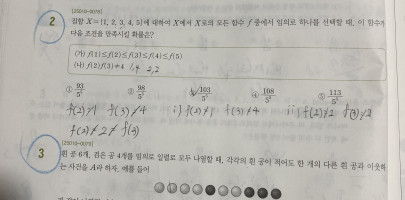 [25010-0078]
2 집합 X={1, 2, 3, 4, 5}에 대하여 X에서 X로의 모든 함수 f 중에서 임의로 하나를 선택할 때, 이 함수가
다음 조건을 만족시킬 확률은?
(가) f(1)≤f(2)≤f(3)≤f(4)≤f(5)
(나) f(2)f(3)≠4 1,4 2,2
① 93/5⁵ ② 98/5⁵ ③ 103/5⁵ ④ 108/5⁵ ⑤ 113/5⁵
f(2)≠1 f(3)≠4 i) f(2)≠1 f(3)≠4 ii) f(2)≠2 f(3)≠2
f(2)≠2≠f(3)
[25010-0079]
3 흰 공 6개, 검은 공 4개를 임의로 일렬로 모두 나열할 때, 각각의 흰 공이 적어도 한 개의 다른 흰 공과 이웃하
는 사건을 A라 하자. 예를 들어